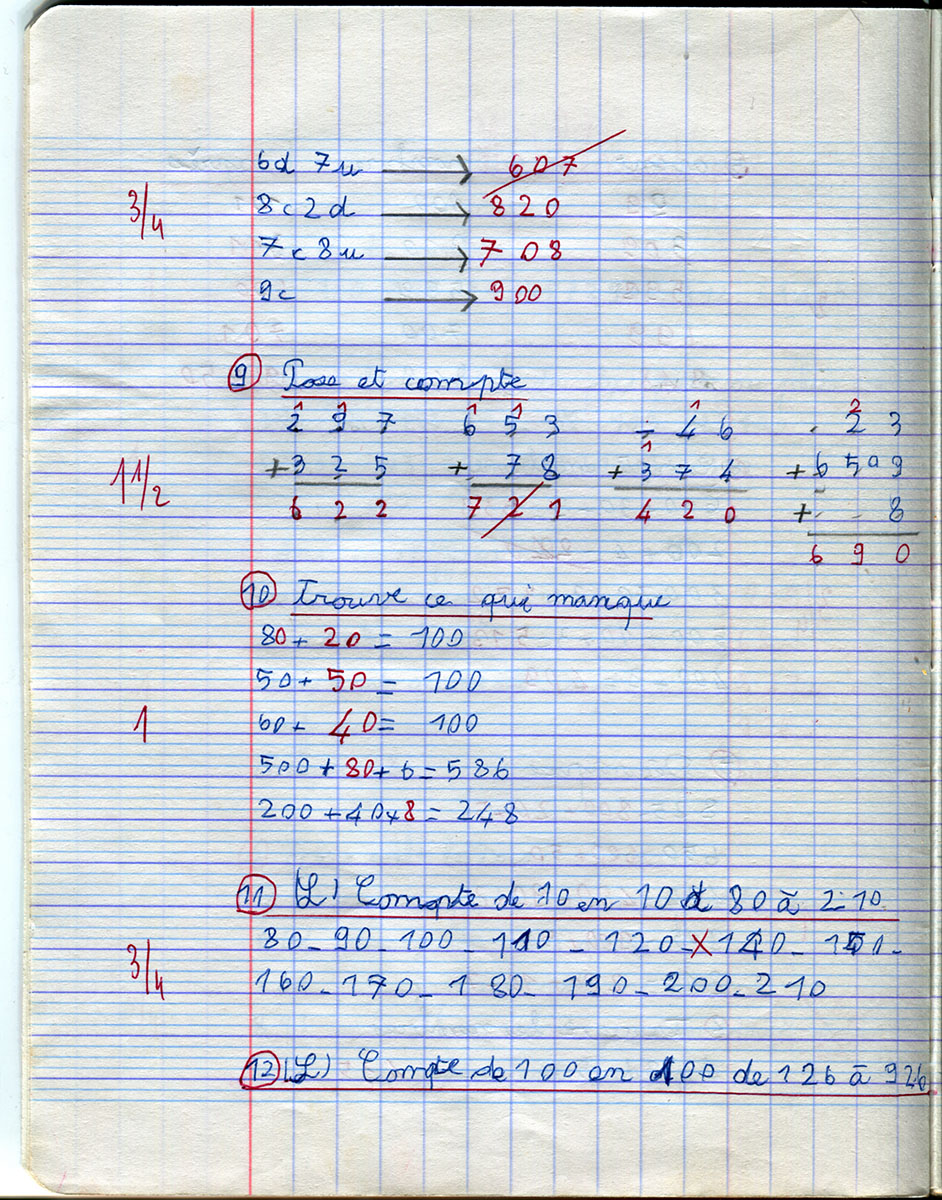 6d 7u → 607
3/4
8c 2d → 820
7c 8u → 708
9c → 900
9 Pose et compte
1 1 1 1 1 2
2 9 7 6 5 3 . 4 6 . 2 3
1
+ 3 2 5 + 7 8 + 3 7 4 + 6 5 0 9
1 1/2
6 2 2 7 2 1 4 2 0 + . . 8
6 9 0
10 Trouve ce qui manque
80 + 20 = 100
50 + 50 = 100
1
60 + 40 = 100
500 + 80 + 6 = 586
200 + 40 + 8 = 248
11 (L) Compte de 10 en 10 d 80 à 210
80 - 90 - 100 - 110 - 120 - X 140 - 150 -
3/4
160 - 170 - 180 - 190 - 200 - 210
12 (L) Compte de 100 en 100 de 126 à 926